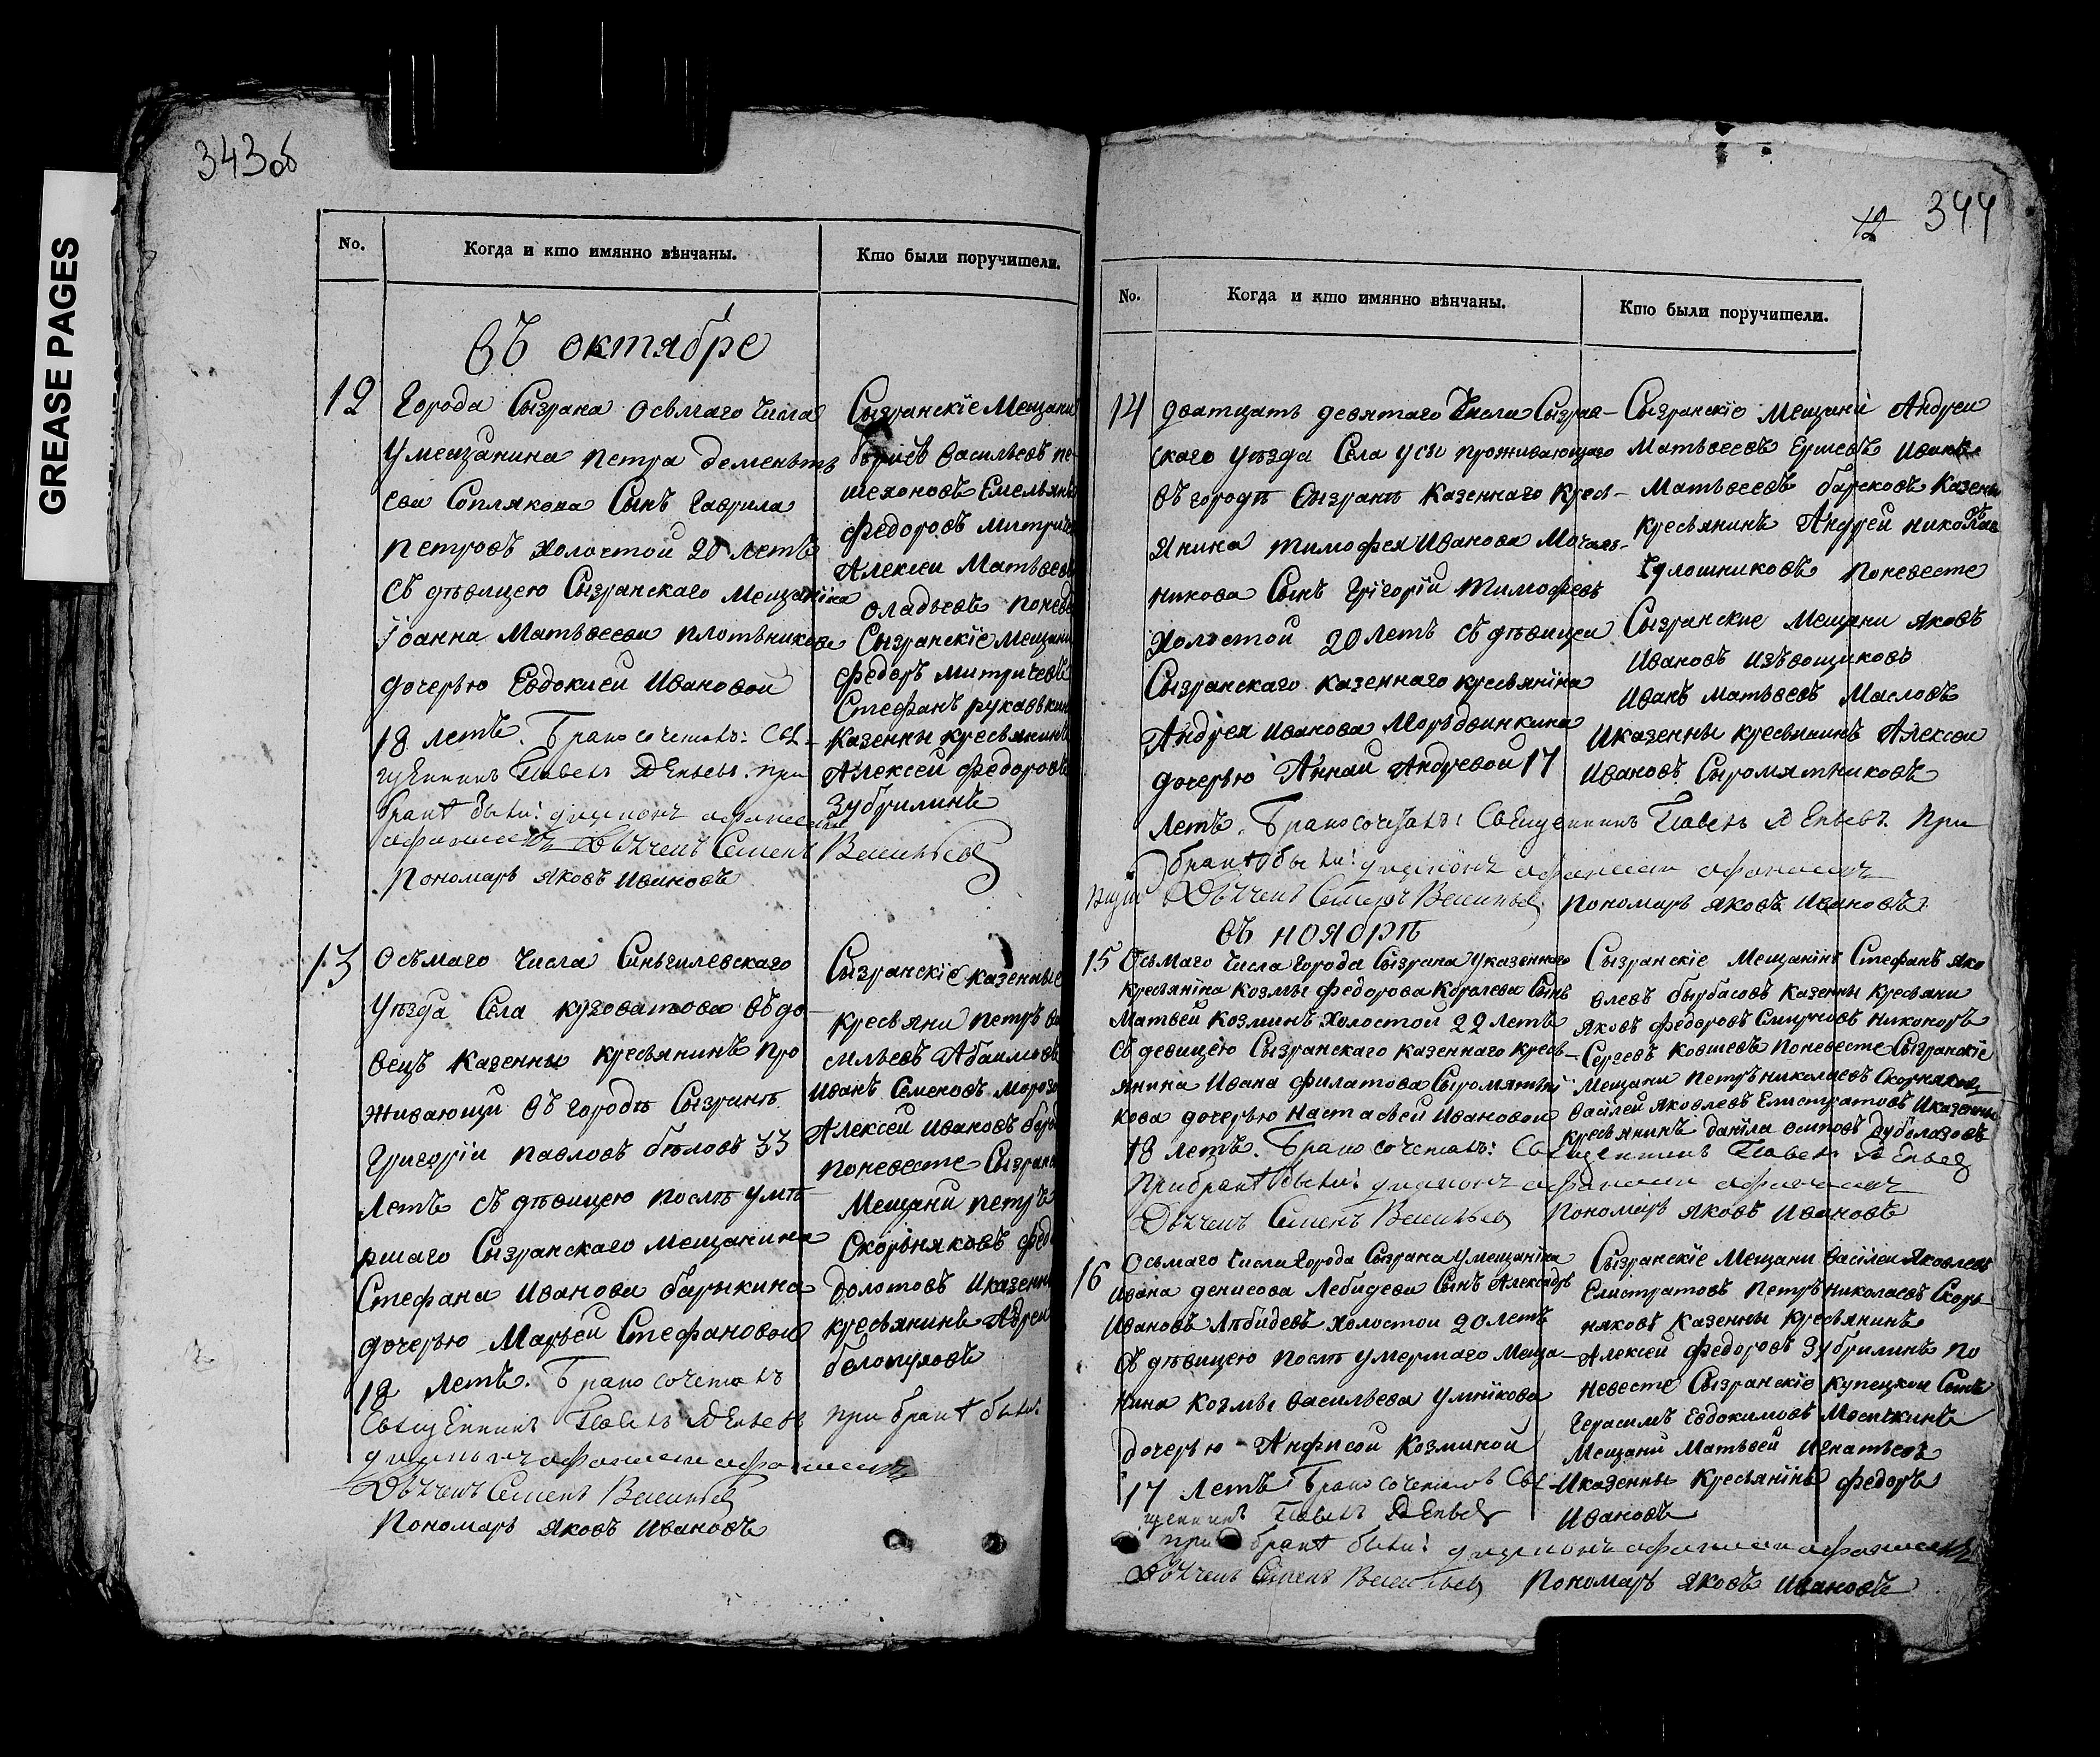 GREASE PAGES
343 об
No.
Когда и кто имянно вѣнчаны.
Кто были поручители.
въ октябре
12
Города Сызрана осьмаго числа
у мещанина петра дементь
ева Соплякова Сынъ гаврила
петровъ холостой 20 летъ
съ дѣвицею Сызранскаго мещаніна
їоанна Матьвеева плотьникова
дочерью Евдокиеи Ивановой
18 летъ. Бракосочеталъ: Свя-
щенникъ Павелъ при
бракѣ были: диаконъ
Дьячекъ Семенъ Васильевъ
Пономарь Яковъ Ивановъ
Сызранскїе Мещани
борисъ васильевъ пе-
шехоновъ Емельянъ
федоровъ митриче
Алексеи Матьвеевъ
оладьевъ поневе
Сызранскїе мещани
федоръ митричевъ
Стефанъ рукавькин
казенны кресьянинъ
Алексей федоровъ
Зубрилинъ
13
Осьмаго числа Синьгилевскаго
уѣзда Села кузоватова въдо-
вецъ казенны кресьянинъ про
живающи въ городѣ Сызранѣ
Григорїи павловъ бѣловъ 33
летъ съ дѣвицею послѣ умѣ
ршаго Сызранскаго мещанина
Стефана Иванова барыкина
дочерью Марьей Стефановой
18 летъ. Бракосочеталъ
Священникъ Павелъ при бракѣ были:
диаконъ
Дьячекъ Семенъ Васильевъ
Пономарь Яковъ Ивановъ
Сызранскїе казенные
кресьяни петръ ва
сильевъ Абаимовъ
Иванъ Семеновъ мороз
Алексей Ивановъ
поневесте Сызран
Мещани петръ
Скорьняковъ фед
долотовъ Иказенны
кресьянинъ Адреи
белопуховъ
12 344
No.
Когда и кто имянно вѣнчаны.
Кто были поручители.
14
дватцать девятаго Числа Сызран-
скаго уѣзда Села усы проживающаго
въ городѣ Сызранѣ казеннаго кресь-
янина тимофея Иванова Мочаль-
никова Сынъ Григорїй тимофеевъ
холостой 20 летъ съ дѣвицеи
Сызранскаго казеннаго кресьяніна
Андрея Иванова Морьдвинкина
дочерью Анной Андреевой 17
летъ. Бракосочеталъ: Священникъ Павелъ при
бракѣ были: диаконъ
Дьячекъ Семенъ Васильевъ Пономарь Яковъ Ивановъ
Сызранскїе мещани Андреи
Матьвеевъ Ершевъ Иванъ
Матьвеевъ барсковъ казены
кресьянинъ Андрей николаевъ
поневесте
Сызранские Мещани яковъ
Ивановъ Изъвощиковъ
Иванъ матьвеевъ Масловъ
Иказенны кресьянинъ Алексеи
Ивановъ Сыромятниковъ
въ ноябрѣ
15
Осьмаго числа города Сызрана у казеннаго
кресьяніна козмы федорова королева Сынъ
матвей козминъ холостой 22 летъ
съ девицею Сызранскаго казеннаго кресь-
янина Ивана филатова Сыромятьни
кова дочерью Настасьей Ивановой
18 летъ. Бракосочеталъ: Священникъ Павелъ
При бракѣ были: диаконъ
Дьячекъ Семенъ Васильевъ Пономарь Яковъ Ивановъ
Сызранскїе Мещанінъ Стефанъ яко
влевъ бырбасовъ казенны кресьяни
яковъ федоровъ Смирновъ никоноръ
Сергеевъ ковшевъ поневесте Сызранскїе
мещани петръ николаевъ Скорняковъ
василей яковлевъ Елистратовъ Иказенны
кресьянинъ данїла осиповъ
16
Осьмаго числа города Сызрана у мещаніна
ивана денисова Лебидева Сынъ Александръ
Ивановъ Лѣбидевъ холостои 20 летъ
съ дѣвицею послѣ умершаго меща-
нина козмы васильева умникова
дочерью Анфисой козминой
17 летъ Бракосочеталъ Свя-
щенникъ Павелъ
при бракѣ были: диаконъ
Дьячекъ Семенъ Васильевъ Пономарь Яковъ Ивановъ
Сызранскїе мещани василеи яковлевъ
Елистратовъ петръ николаевъ Скорь-
няковъ казенны кресьянинъ
Алексей федоровъ Зубрилинъ по
невесте Сызранскїе купецкои Сынъ
Герасимъ Евдокимовъ Мосичкинъ
мещани матьвей Игнатьевъ
Иказенны кресьянінъ федоръ
Ивановъ